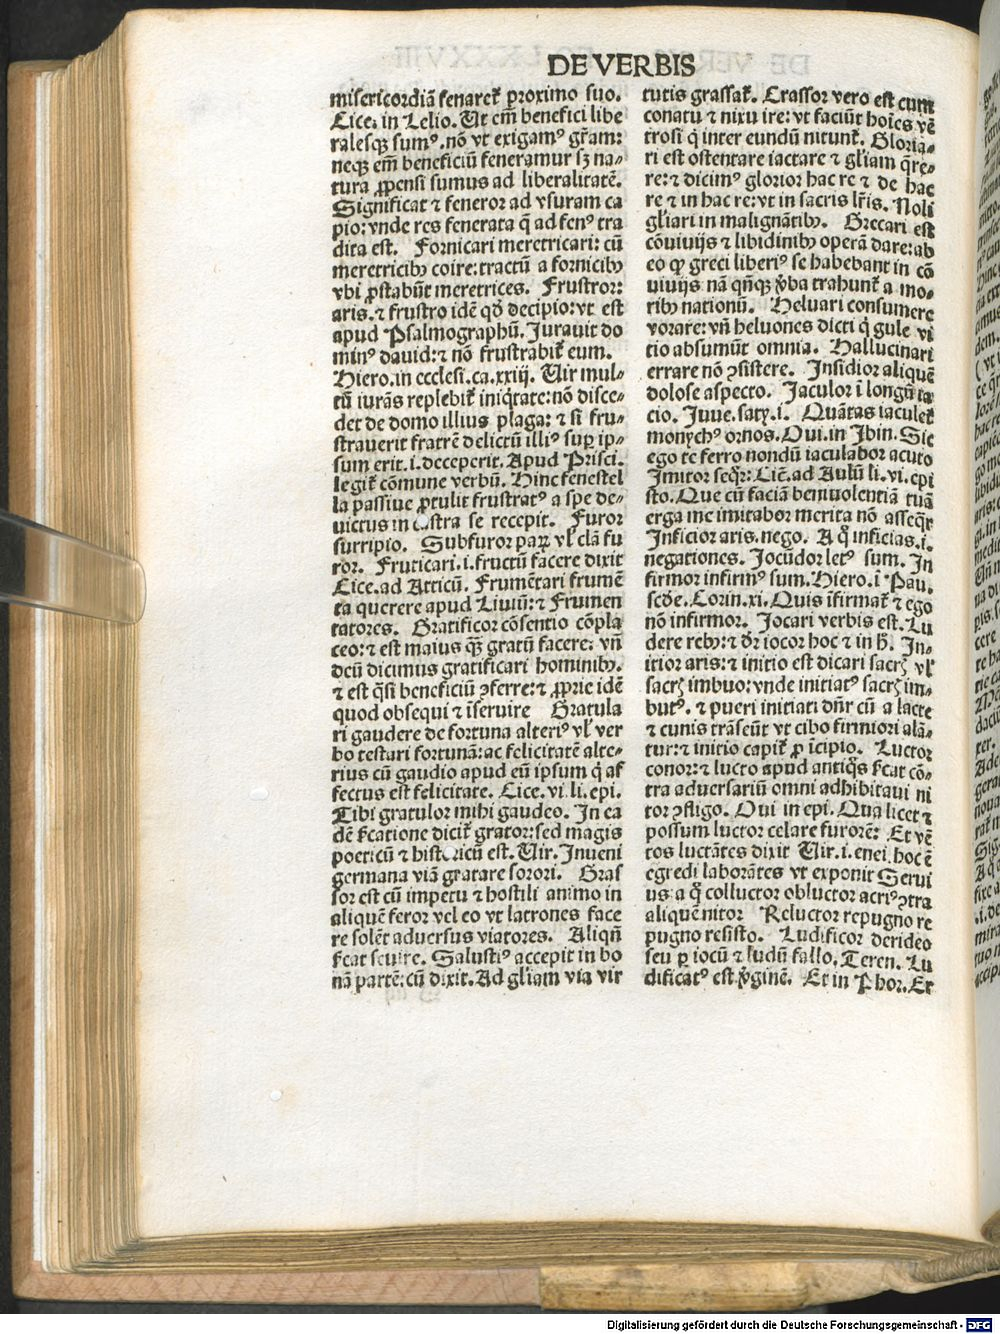 DE VERBIS
misericordiā fenareť proximo suo.
Cice. in Lelio. Ut em̄ benefici libe
ralesqȝ sumꝰ. nō vt exigamꝰ gr̄am:
neqȝ em̄ beneficiū feneramur sȝ na⸗
tura ꝓpensi sumus ad liberalitatē.
Significat ⁊ feneror ad vsuram ca
pio: vnde res fenerata q̄ ad fenꝰ tra
dita est. Fornicari meretricari: cū
meretricibꝫ coire: tractū a fornicibꝫ
vbi ꝓstabūt meretrices. Frustror:
aris. ⁊ frustro idē qd̄ decipio: vt est
apud Psalmographū. Jurauit do
minꝰ dauid: ⁊ nō frustrabiť eum.
Hiero. in ecclesi. ca. xxiij. Uir mul⸗
tū iurās replebiť iniq̄tate: nō disce⸗
det de domo illius plaga: ⁊ si fru⸗
strauerit fratrē delictū illiꝰ suꝑ ip⸗
sum erit. i. deceperit. Apud Prisci.
legiť cōmune verbū. Hinc fenestel
la passiue ꝓtulit frustratꝰ a spe de⸗
uictus in castra se recepit. Furor
surripio. Subfuror paꝝ vł clā fu
ror. Fruticari. i. fructū facere dixit
Cice. ad Atticū. Frumētari frumē
ta querere apud Liuiū: ⁊ Frumen
tatores. Gratificor cōsentio cōpla
ceo: ⁊ est maius qȝ gratū facere: vn̄
deū dicimus gratificari hominibꝫ.
⁊ est q̄si beneficiū ꝯferre: ⁊ ꝓprie idē
quod obsequi ⁊ īseruire Gratula
ri gaudere de fortuna alteriꝰ vł ver
bo testari fortunā: ac felicitatē alte⸗
rius cū gaudio apud eū ipsum q́ af
fectus est felicitate. Cice. vi. li. epi.
Tibi gratulor mihi gaudeo. In ea
dē s̄catione diciť grator: sed magis
poeticū ⁊ historicū est. Uir. Inueni
germana viā gratare sorori. Gras
sor est cū impetu ⁊ hostili animo in
aliquē feror vel eo vt latrones face
re solēt aduersus viatores. Aliqn̄
s̄cat seuire. Salustiꝰ accepit in bo
nā partē: cū dixit. Ad gl̄iam via vir
tutis grassať. Crassor vero est cum
conatu ⁊ nixu ire: vt faciūt hoīes vē
trosi q́ inter eundū nitunť. Gloria⸗
ri est ostentare iactare ⁊ gl̄iam q̄re⸗
re: ⁊ dicimꝰ glorior hac re ⁊ de hac
re ⁊ in hac re: vt in sacris lr̄is. Noli
gl̄iari in malignātibꝫ. Grecari est
cōuiuijs ⁊ libidinibꝫ operā dare: ab
eo qȝ greci liberiꝰ se habebant in cō
uiuijs nā qn̄qȝ v̄ba trahunť a mo⸗
ribꝫ nationū. Heluari consumere
vorare: vn̄ heluones dicti q́ gule vi
tio absumūt omnia. Hallucinari
errare nō ꝯsistere. Insidior aliquē
dolose aspecto. Jaculor ī longū ia
cio. Juue. saty. i. Quātas iaculeť
monychꝰ ornos. Oui. in Ibin. Sic
ego te ferro nondū iaculabor acuto
Imitor seqr̄: Cic̄. ad Aulū li. vi. epi
sto. Que cū faciā beniuolentiā tuā
erga me imitabor merita nō asseqr̄
Inficior aris. nego. A q̄ inficias. i.
negationes. Jocūdor letꝰ sum. In
firmor infirmꝰ sum. Hiero. ī Pau.
scd̄e. Corin. xi. Quis īfirmať ⁊ ego
nō infirmor. Jocari verbis est. Lu
dere rebꝫ: ⁊ dr̄ iocor hoc ⁊ in h̄. In⸗
itior aris: ⁊ initio est dicari sacrȝ vł
sacrȝ imbuo: vnde initiatꝰ sacrȝ im⸗
butꝰ. ⁊ pueri initiati dn̄r cū a lacte
⁊ cunis trāseūt vt cibo firmiori alā⸗
tur: ⁊ initio capiť ꝓ īcipio. Luctor
conor: ⁊ lucto apud antiq̄s s̄cat cō⸗
tra aduersariū omni adhibitaui ni
tor ꝯfligo. Oui in epi. Qua licet ⁊
possum luctor celare furorē: Et vē
tos luctātes dixit Uir. i. enei. hoc ē
egredi laborātes vt exponit Serui
us a q̄ colluctor obluctor acriꝰ ꝯtra
aliquē nitor Reluctor repugno re
pugno resisto. Ludificor derideo
seu ꝑ iocū ⁊ ludū fallo. Teren. Lu
dificatꝰ est v̄ginē. Et in Phor. Er
Digitalisierung gefördert durch die Deutsche Forschungsgemeinschaft - DFG